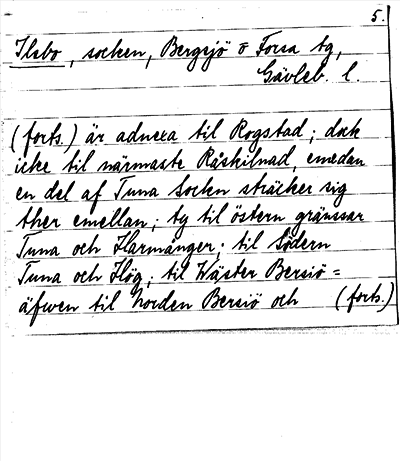 5.
Ilsbo, socken, Bergsjö o Forsa tg,
Gävleb. l.
(forts.) är adnexa til Rogstad; dock
icke til närmaste Råskilnad, emedan
en del af Tuna Sockn sträcker sig
ther emellan; ty til östern gränssar
Tuna och Harmånger; til Södern
Tuna och Hög; til Wäster Bersiö=
äfwen til Norden Bersiö och (forts.)